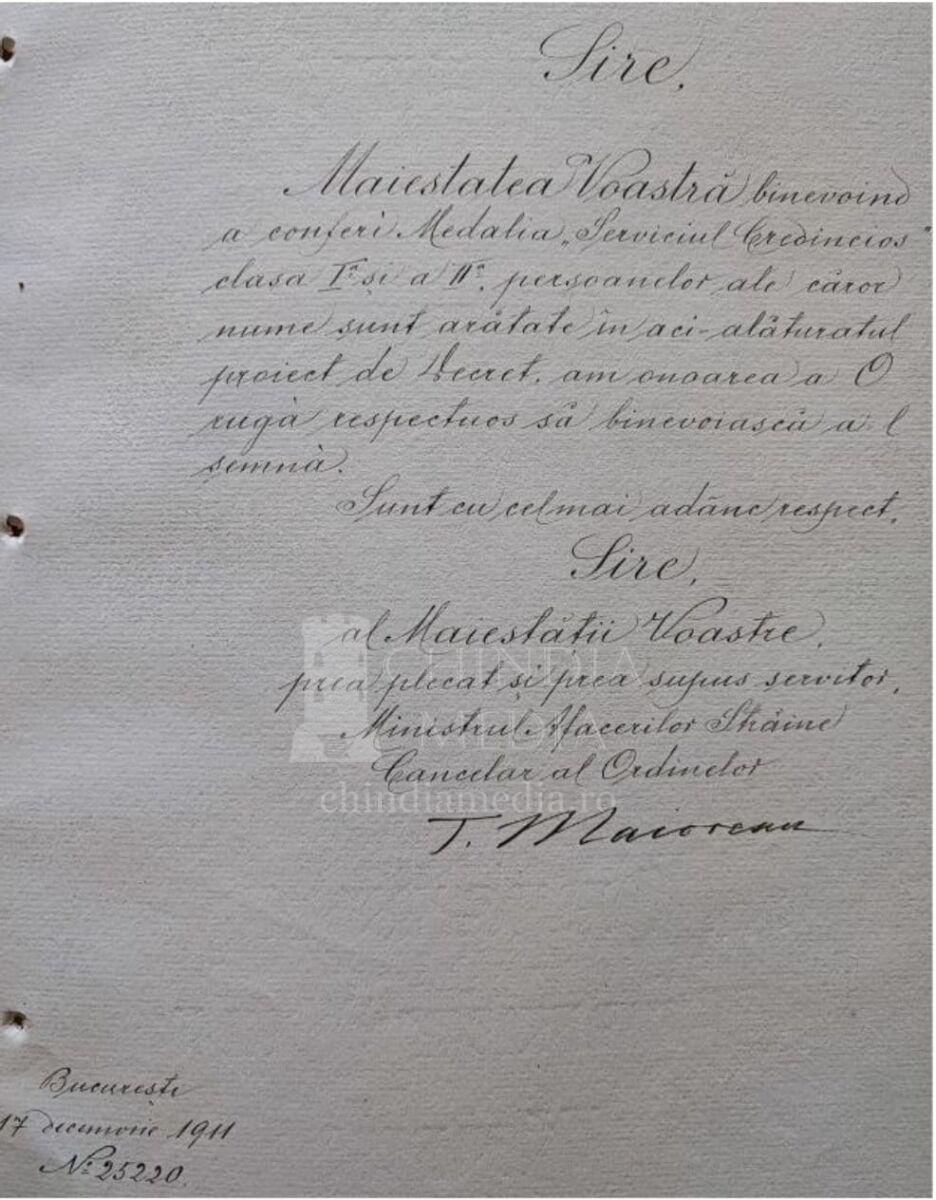 Sire,
Maiestatea Voastră binevoind
a conferì Medalia „Serviciul Credincios"
clasa Iª și a IIª, persoanelor ale căror
nume sunt arătate în aci-alăturatul
proiect de Decret, am onoarea a O
rugà respectuos să binevoiască a-l
semnà.
Sunt cu cel mai adânc respect,
Sire,
al Maiestății Voastre,
prea plecat și prea supus servitor,
Ministrul Afacerilor Străine
Cancelar al Ordinelor
T. Maiorescu
CHINDIA
MEDIA
chindiamedia.ro
București
17 decemvrie 1911
Nº 25220.